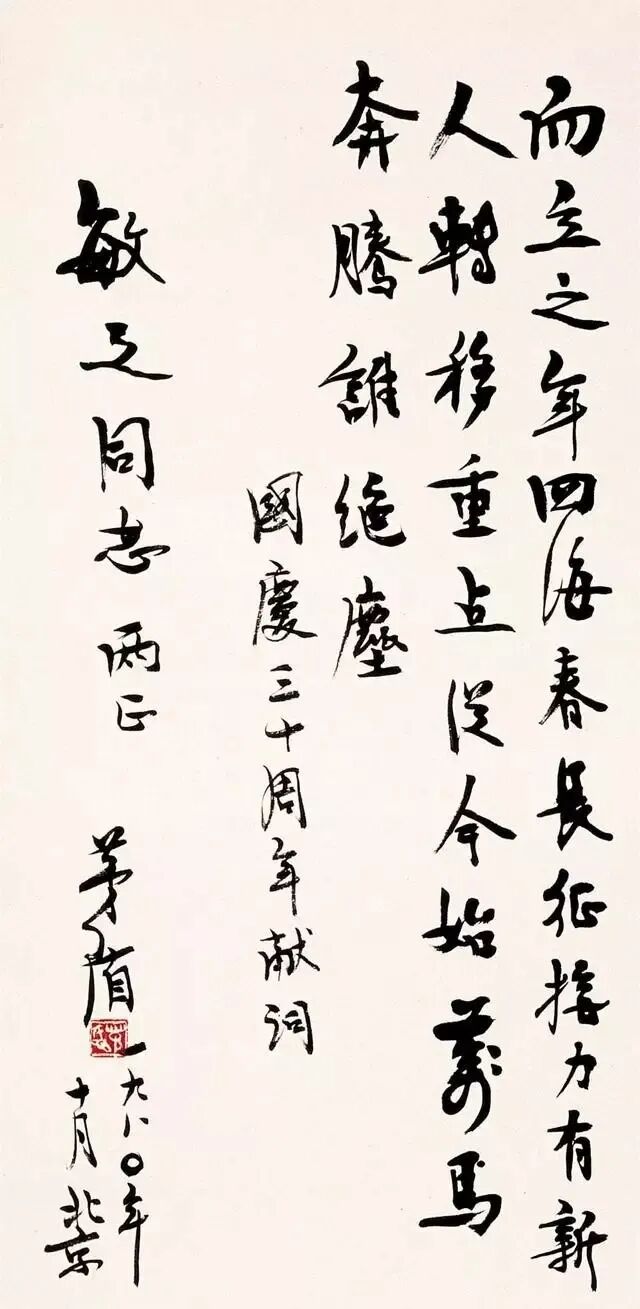 而立之年四海春長征接力有新
人轉移重点從今始萬馬
奔騰誰絶塵
國慶三十周年献词
敏之同志两正
茅盾
一九八〇年
十月北京